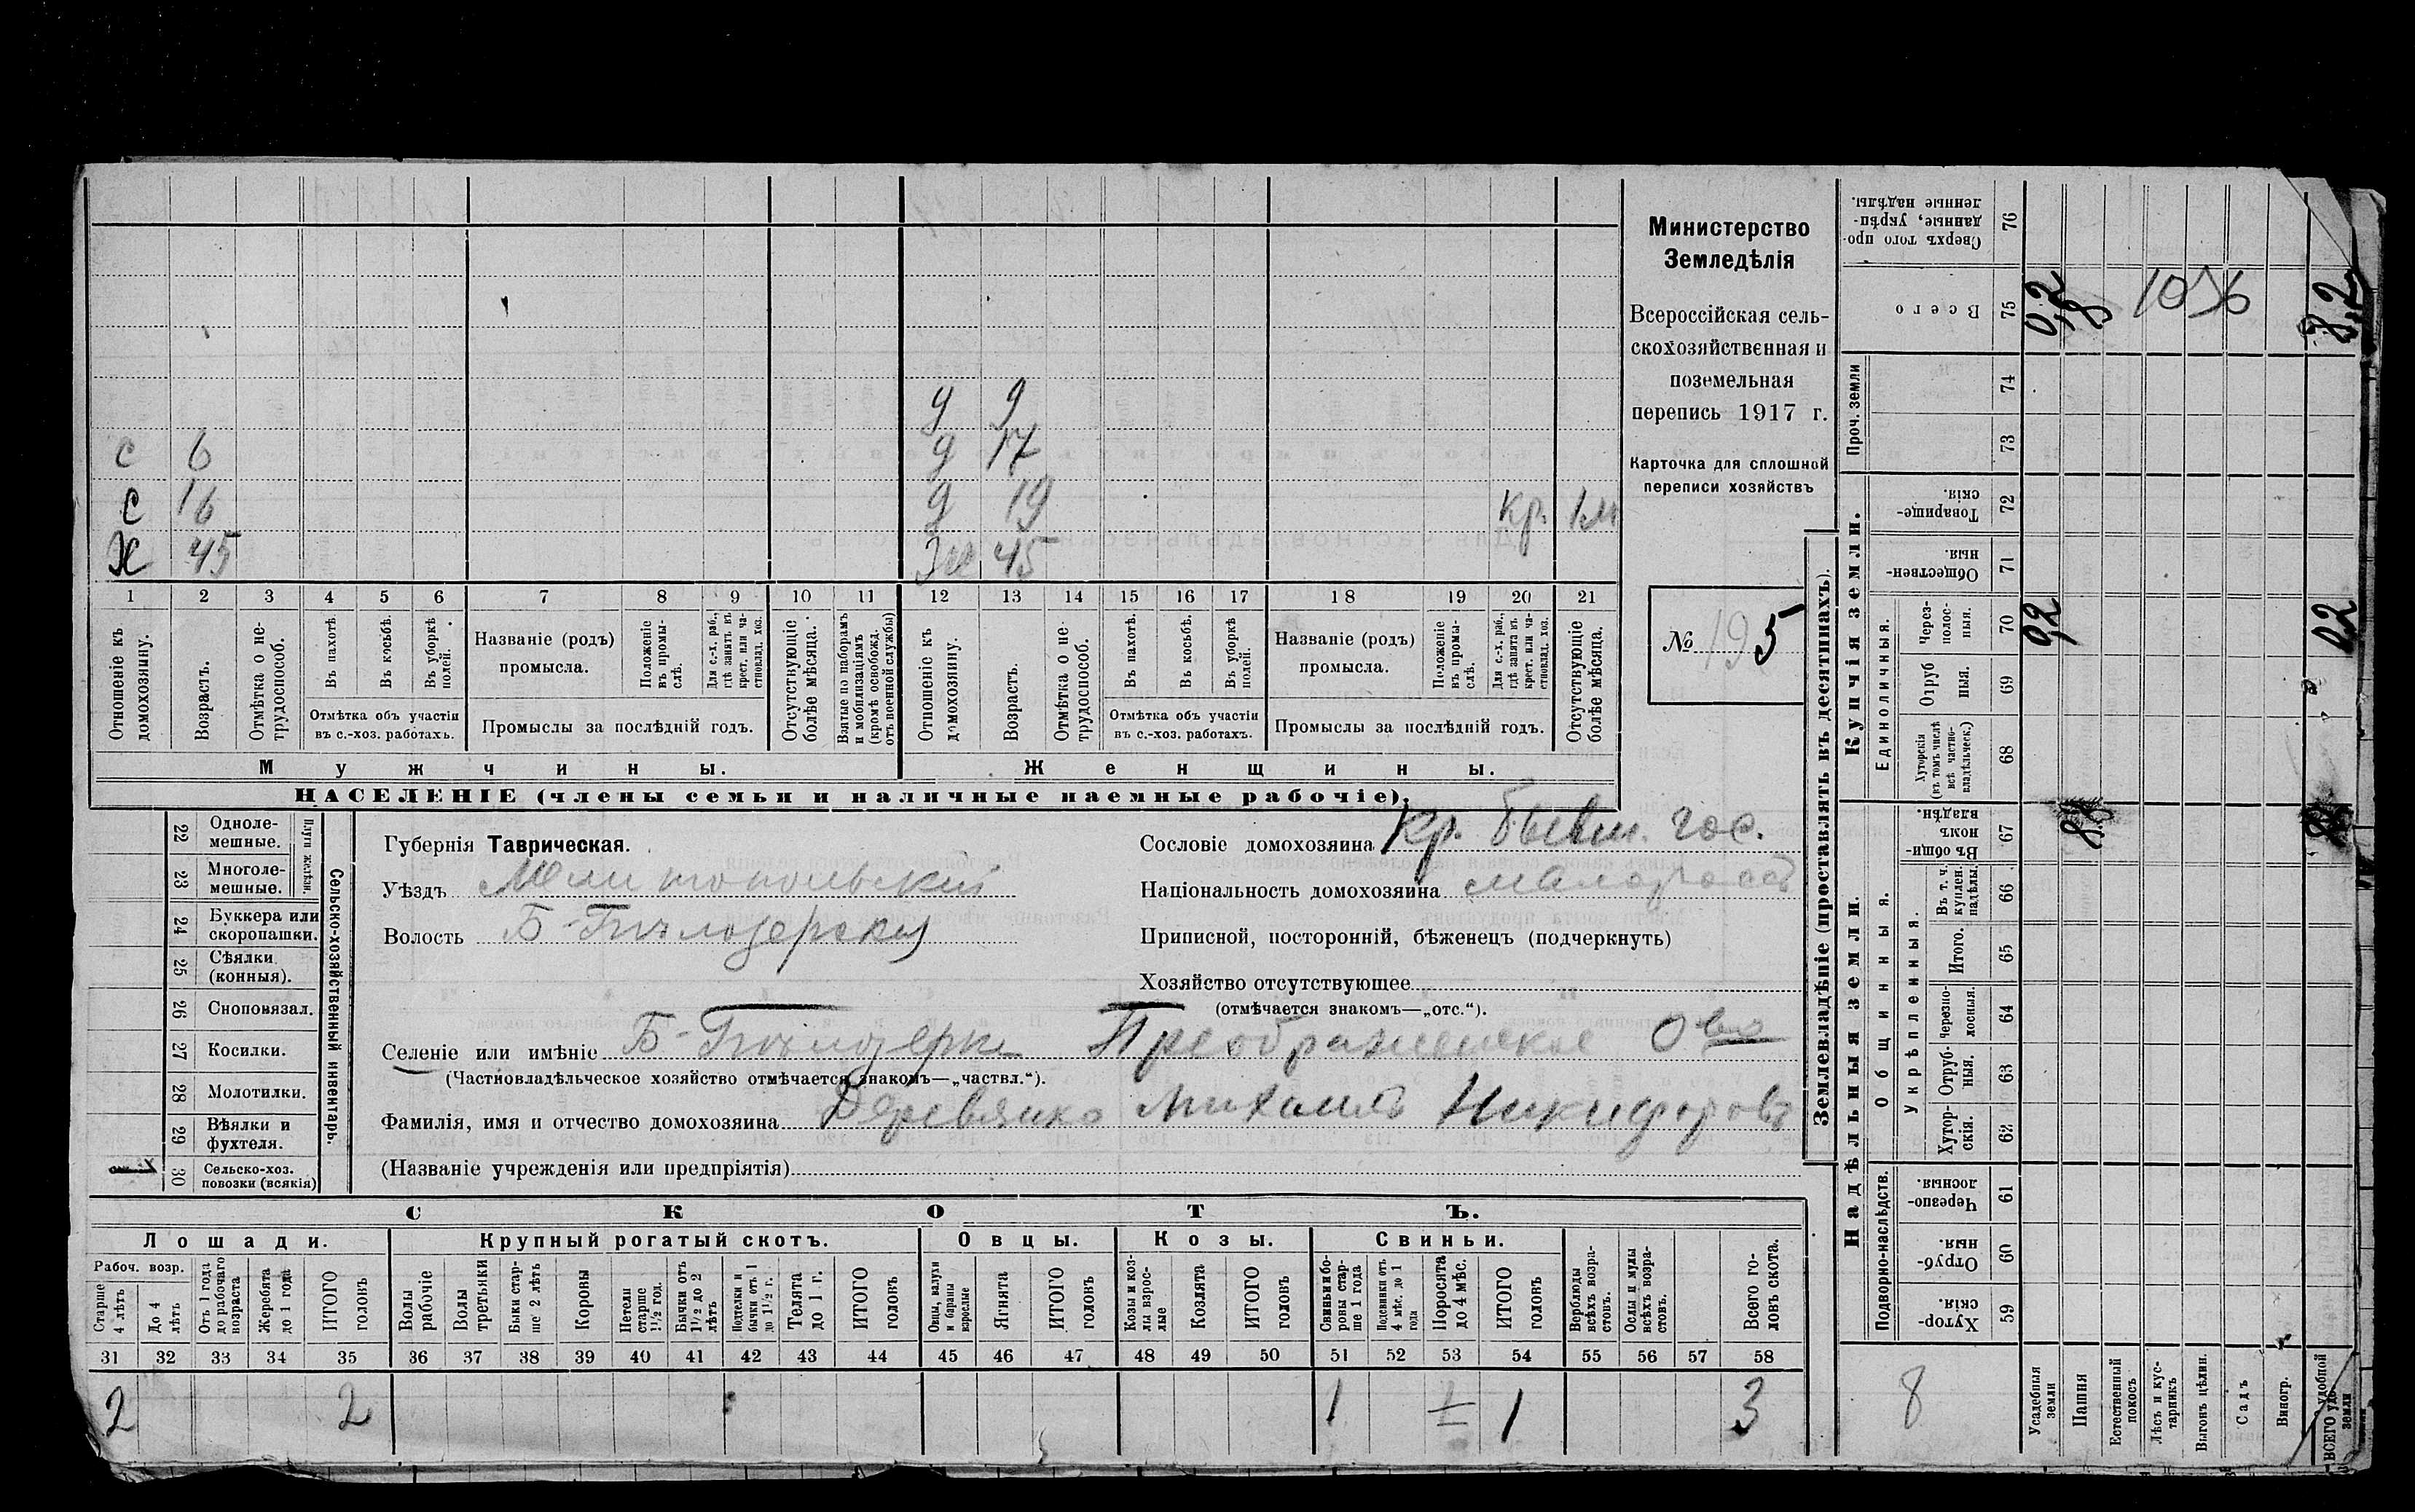 Министерство
Земледѣлія
Всероссійская сель-
скохозяйственная и
поземельная
перепись 1917 г.
Карточка для сплошной
переписи хозяйствъ
№ 195
д 9
с 6 д 17
с 16 д 19 кр. 1м
Х 45 Ж 45
1 2 3 4 5 6 7 8 9 10 11 12 13 14 15 16 17 18 19 20 21
Отношеніе къ домохозяину.
Возрастъ.
Отмѣтка о не-трудоспособ.
Въ пахотѣ.
Въ косьбѣ.
Въ уборкѣ полей.
Отмѣтка объ участіи въ с.-хоз. работахъ.
Названіе (родъ) промысла.
Положеніе въ промы-слѣ.
Для с.-х. раб., гдѣ занятъ въ крест. или ча-стновлад. хоз.
Промыслы за послѣдній годъ.
Отсутствующіе болѣе мѣсяца.
Взятые по наборамъ и мобилизаціямъ (кромѣ освобожд. отъ военной службы)
Отношеніе къ домохозяину.
Возрастъ.
Отмѣтка о не-трудоспособ.
Въ пахотѣ.
Въ косьбѣ.
Въ уборкѣ полей.
Отмѣтка объ участіи въ с.-хоз. работахъ.
Названіе (родъ) промысла.
Положеніе въ промы-слѣ.
Для с.-х. раб., гдѣ занята въ крест. или ча-стновлад. хоз.
Промыслы за послѣдній годъ.
Отсутствующіе болѣе мѣсяца.
Мужчины. Женщины.
НАСЕЛЕНІЕ (члены семьи и наличные наемные рабочіе).
Сельско-хозяйственный инвентарь.
Плуги желѣзн.
22 Одноле-мешные.
23 Многоле-мешные.
24 Буккера или скоропашки.
25 Сѣялки (конныя).
26 Сноповязал.
27 Косилки.
28 Молотилки.
29 Вѣялки и фухтеля.
30 Сельско-хоз. повозки (всякія) 1
Губернія Таврическая.
Уѣздъ Мелитопольскій
Волость Б-Бѣлозерская
Сословіе домохозяина Кр. бывш. гос.
Національность домохозяина малороссъ
Приписной, посторонній, бѣженецъ (подчеркнуть)
Хозяйство отсутствующее
(отмѣчается знакомъ—„отс.“).
Селеніе или имѣніе Б-Бѣлозерка Преображенское О-во
(Частновладѣльческое хозяйство отмѣчается знакомъ—„частвл.“).
Фамилія, имя и отчество домохозяина Деревянко Михаилъ Никифоровъ
(Названіе учрежденія или предпріятія)
СКОТЪ.
Лошади. Крупный рогатый скотъ. Овцы. Козы. Свиньи.
Рабоч. возр.
Старше 4 лѣтъ
До 4 лѣтъ
Отъ 1 года до рабочаго возраста
Жеребята до 1 года
ИТОГО головъ
Волы рабочіе
Волы третьяки
Быки стар-ше 2 лѣтъ
Коровы
Нетели старше 1½ год.
Бычки отъ 1½ до 2 лѣтъ
Телята до 1 г.
ИТОГО головъ
Овцы, валухи и бараны взрослые
Ягнята
ИТОГО головъ
Козы и коз-лы взрос-лые
Козлята
ИТОГО головъ
Свиньи и бо-ровы стар-ше 1 года
Подсвинки отъ 4 мѣс. до 1 года
Поросята до 4 мѣс.
ИТОГО головъ
Верблюды всѣхъ возра-стовъ.
Ослы и мулы всѣхъ возра-стовъ.
Всего го-ловъ скота.
31 32 33 34 35 36 37 38 39 40 41 42 43 44 45 46 47 48 49 50 51 52 53 54 55 56 57 58
2 2 1 1 3
Землевладѣніе (проставлять въ десятинахъ).
Надѣльныя земли. Купчія земли. Проч. земли
Подворно-наслѣдств.
Общинныя.
Укрѣпленныя.
Единоличныя.
Хутор-скія. 59
Отруб-ныя. 60
Черезпо-лосныя. 61
Хутор-скія. 62
Отруб-ныя. 63
Черезпо-лосныя. 64
Итого. 65
Въ т. ч. куплен. надѣлы. 66
Въ общи-номъ владѣн. 67
Хуторскія (въ томъ числѣ всѣ частно-владѣльческ.) 68
Отруб ныя. 69
Через-полос-ныя. 70
Обществен-ныя. 71
Товарище-скія. 72
73
74
Всего 75
Сверхъ того про-данные, укрѣп-ленные надѣлы. 76
8
Усадебныя земли 0,2 0,2
Пашня 8 8
Естественный покосъ
Лѣсъ и кус-тарникъ
Выгонъ цѣлин.
Садъ
Виногр.
ВСЕГО удобной земли 0,2 8,2